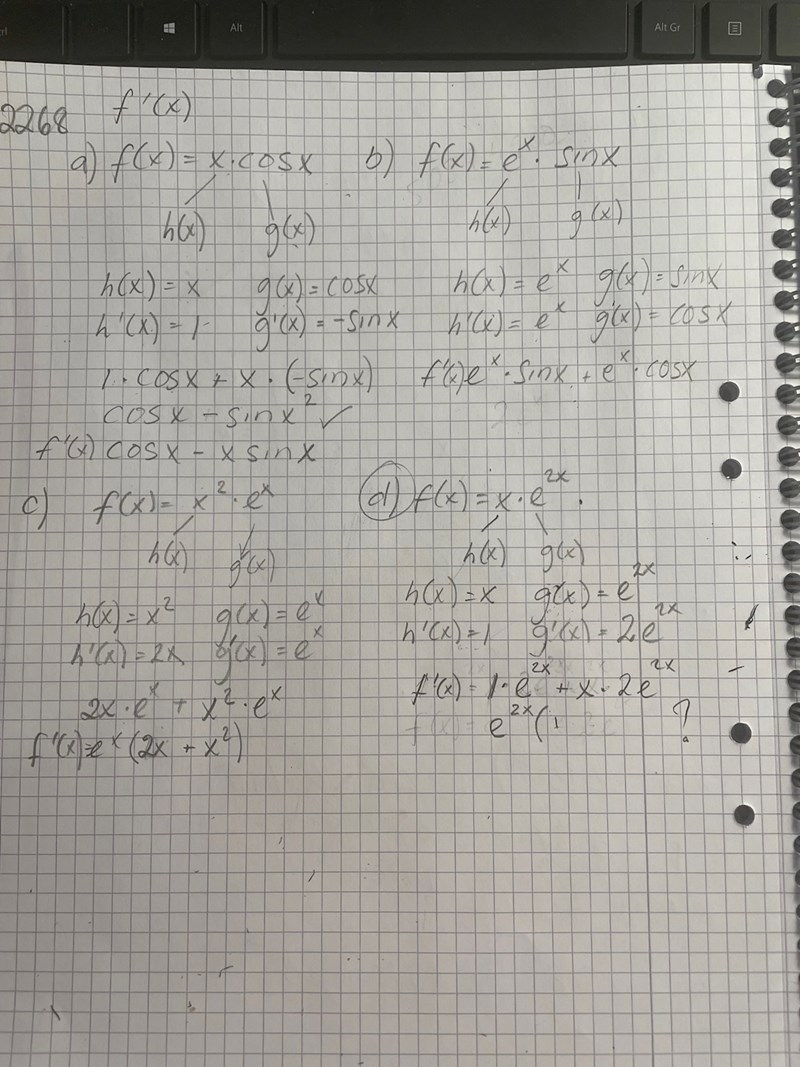 Alt
Alt Gr
2268 f'(x)
a) f(x) = x · cosx
h(x) g(x)
h(x) = x g(x) = cosx
h'(x) = 1 g'(x) = -sinx
1 · cosx + x · (-sinx)
cosx - sinx² ✓
f'(x) cosx - x sinx
b) f(x) = e^x · sinx
h(x) g(x)
h(x) = e^x g(x) = sinx
h'(x) = e^x g'(x) = cosx
f'(x) e^x · sinx + e^x · cosx
c) f(x) = x² · e^x
h(x) g(x)
h(x) = x² g(x) = e^x
h'(x) = 2x g'(x) = e^x
2x · e^x + x² · e^x
f'(x) = e^x (2x + x²)
d) f(x) = x · e^2x
h(x) g(x)
h(x) = x g(x) = e^2x
h'(x) = 1 g'(x) = 2e^2x
f'(x) = 1 · e^2x + x · 2e^2x
f(x) = e^2x (1 ?